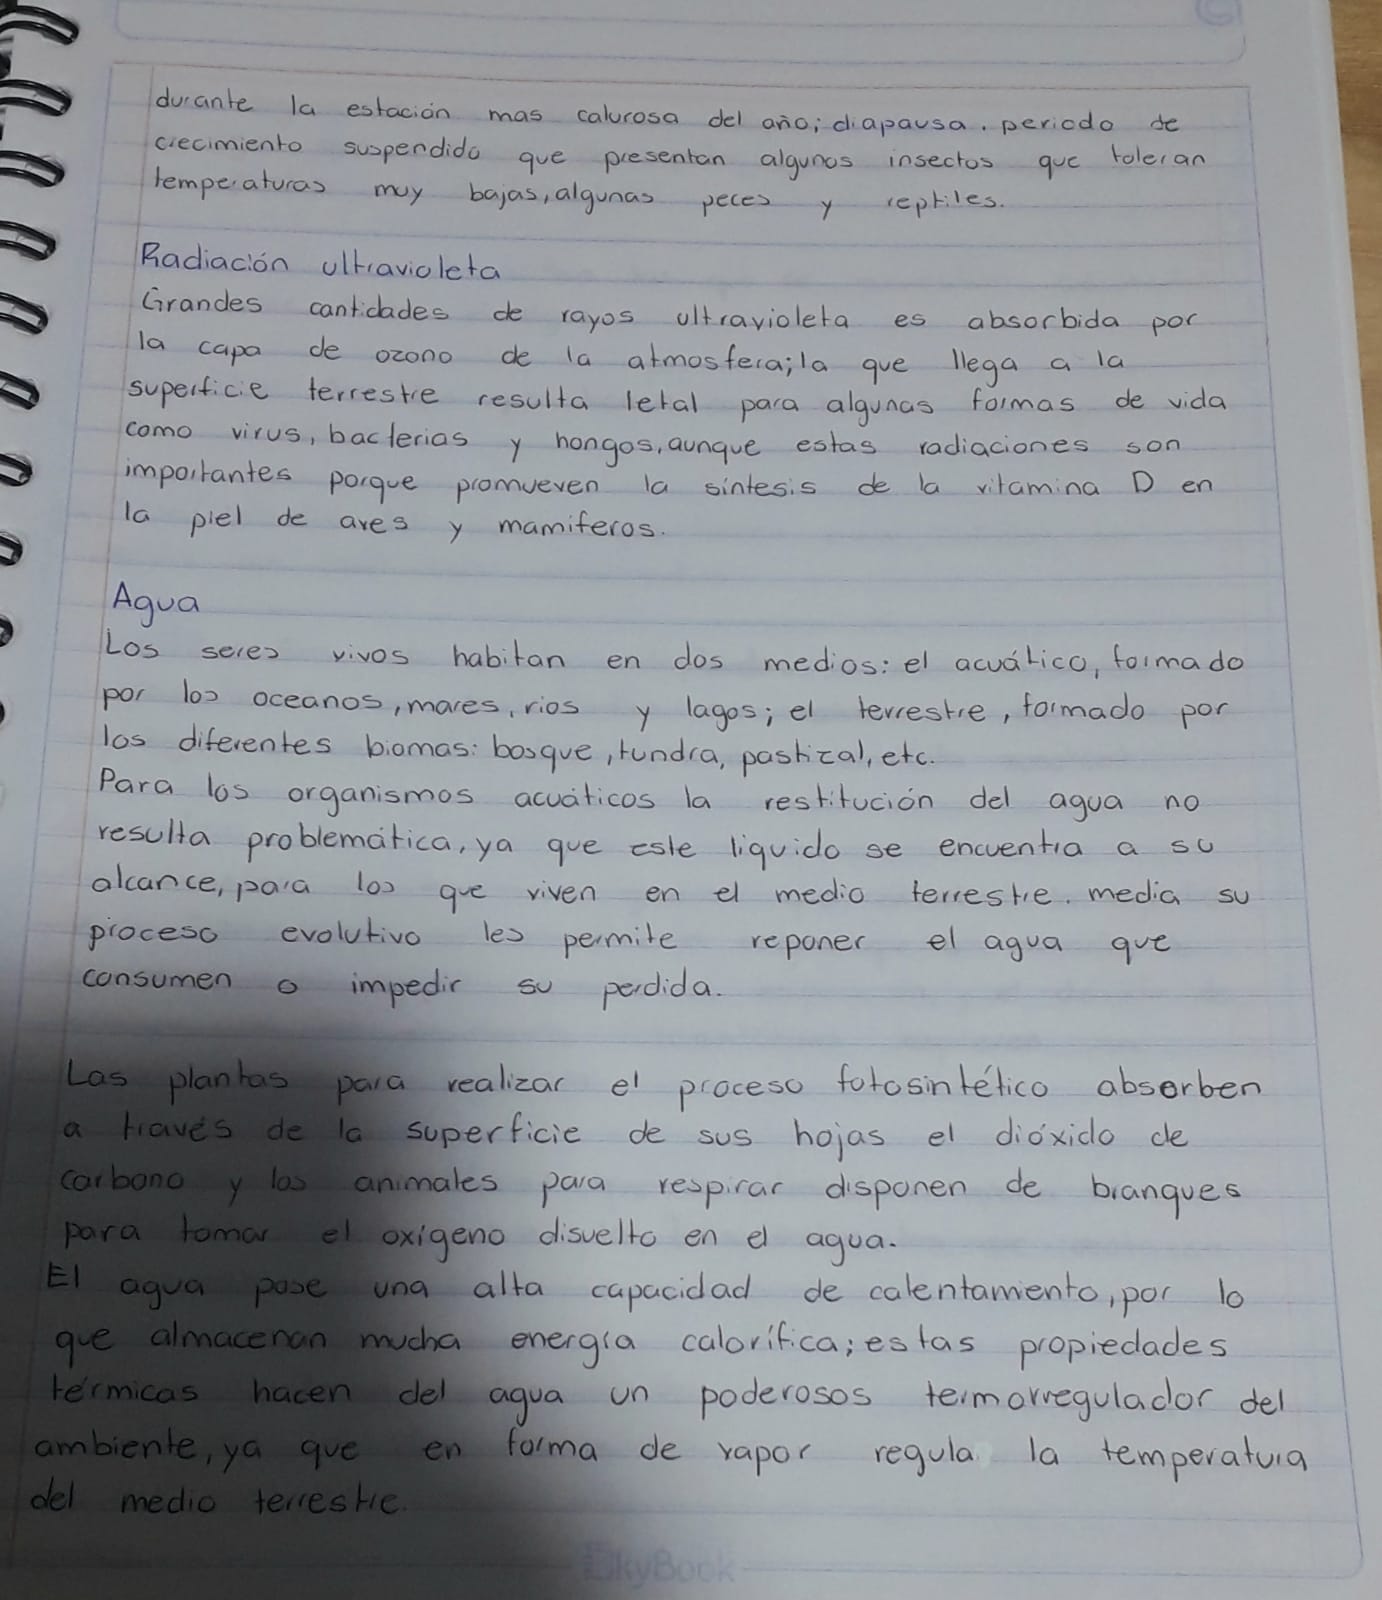 durante la estación mas calurosa del año; diapausa. periodo de
crecimiento suspendido que presentan algunos insectos que toleran
temperaturas muy bajas, algunas peces y reptiles.
Radiación ultravioleta
Grandes cantidades de rayos ultravioleta es absorbida por
la capa de ozono de la atmosfera; la que llega a la
superficie terrestre resulta letal para algunas formas de vida
como virus, bacterias y hongos, aunque estas radiaciones son
importantes porque promueven la síntesis de la vitamina D en
la piel de aves y mamiferos.
Agua
Los seres vivos habitan en dos medios: el acuático, formado
por los oceanos, mares, rios y lagos; el terrestre, formado por
los diferentes biomas: bosque, tundra, pastizal, etc.
Para los organismos acuáticos la restitución del agua no
resulta problemática, ya que este liquido se encuentra a su
alcance, para los que viven en el medio terrestre. media su
proceso evolutivo les permite reponer el agua que
consumen o impedir su perdida.
Las plantas para realizar el proceso fotosintético absorben
a través de la superficie de sus hojas el dióxido de
carbono y los animales para respirar disponen de branques
para tomar el oxígeno disuelto en el agua.
El agua pose una alta capacidad de calentamiento, por lo
que almacenan mucha energía calorífica; estas propiedades
térmicas hacen del agua un poderosos termorregulador del
ambiente, ya que en forma de vapor regula la temperatura
del medio terrestre.
SkyBook